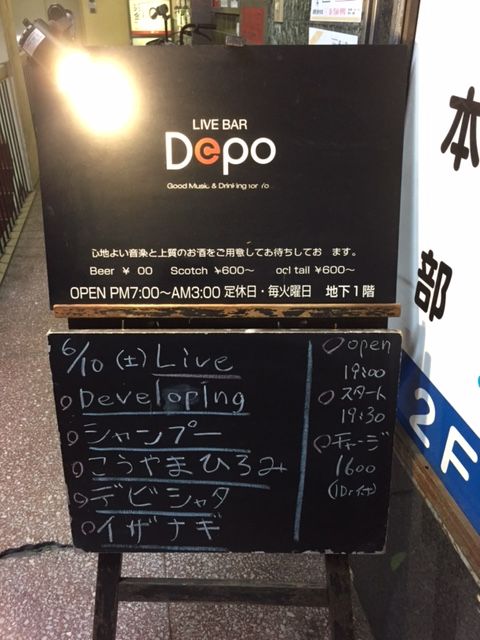 LIVE BAR
Depo
Good Music & Drinking
心地よい音楽と上質のお酒をご用意してお待ちしてお ます。
Beer ¥ 00 Scotch ¥600〜 oc tail ¥600〜
OPEN PM7:00〜AM3:00 定休日・毎火曜日 地下1階
6/10 (土) Live
Developing
シャンプー
こうやまひろみ
デビシャタ
イザナギ
open
19:00
スタート
19:30
チャージ
1600
(1Dr付)
本
部
2F